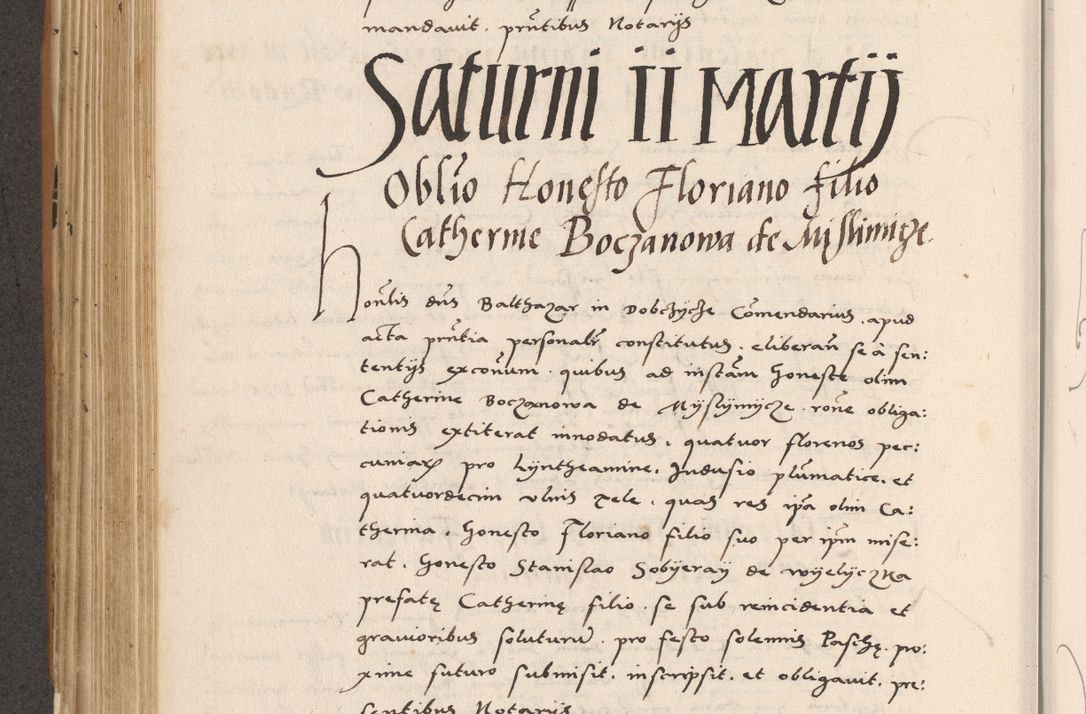 mandavit. pr̃ntibus Notarijs
Saturni 11 Martij
Obl̃io Honesto Floriano filio
Catherine Boczanowa de Mislimicze.
honl̃is dñs Balthazar in Dobczycze Com̃endarius, apud
acta pñtia personalr̃ constitutus, eliberañ se à sen:
tentijs excoñum. quibus ad instañ honeste olim
Catherine Boczanowa de Myslymycze. roñe obliga:
tionis extiterat innodatus, quatuor florenos pec:
cuniaꝝ pro Lyntheamine, Indusio plũmatice, et
quatuordecim ulnis tele, quas res ip̃a olim Ca:
therina, honesto Floriano filio suo per ip̃m mise:
rat, honesto Stanislao Sobyeray de Wyelyczka
prefatę Catherinę filio. se sub reincidentia et
gravioribus soluturũ. pro festo solemnis Paschę. pro:
xime futuro submisit, inscripsit, et obligavit, pre:
sentibus Notarijs